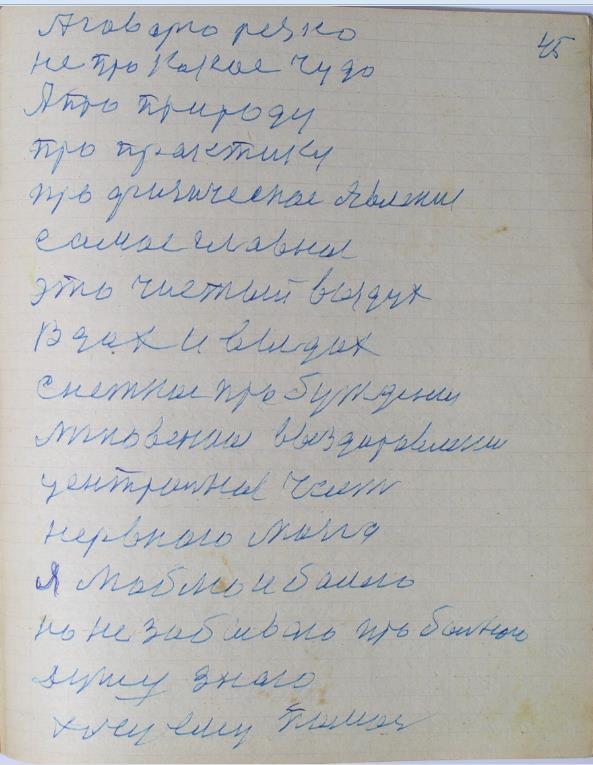 45
Яговорю резко
не про какое чудо
Я про природу
про практику
про физическое явление
самое главное
это чистый воздух
Вдох и выдох
снежное пробуждение
мгновение выздоровление
центральное часть
нервного мозга
Я люблю и
но не забываю про больного
душу знаю
хочу ему помоч